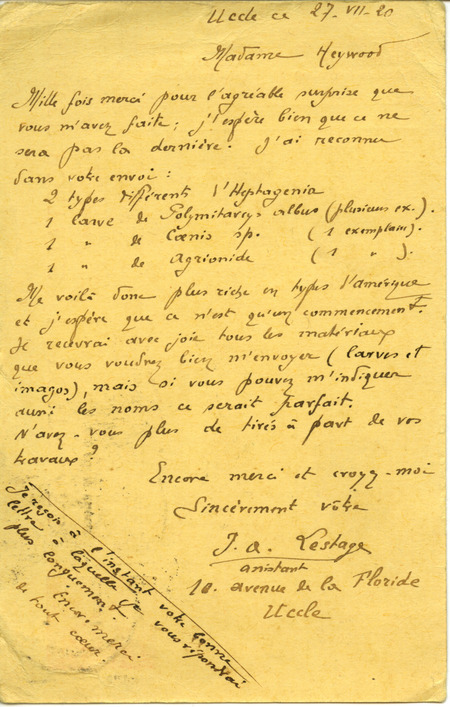 Uccle ce 27-VII-20
Madame Heywood
Mille fois merci pour l'agréable surprise que
vous m'avez faite; j'espère bien que ce ne
sera pas la dernière. J'ai reconnu
dans votre envoi:
2 types différents d'Heptagenia
1 larve de Polymitarcys albus (plusieurs ex.).
1 " de Cænis sp. (1 exemplaire).
1 " de Agrionide (1 " ).
Me voilà donc plus riche en types d'Amérique
et j'espère que ce n'est qu'un commencement.
Je recevrai avec joie tous les matériaux
que vous voudrez bien m'envoyer (larves et
imagos), mais si vous pouvez m'indiquer
aussi les noms ce serait parfait.
N'avez-vous plus de tirés à part de vos
travaux?
Encore merci et croyez-moi
Sincèrement vôtre
J. A. Lestage
assistant
10. avenue de la Floride
Uccle
Je reçois à l'instant votre bonne
lettre à laquelle je vous répondrai
plus longuement.
Encore merci
de tout cœur.